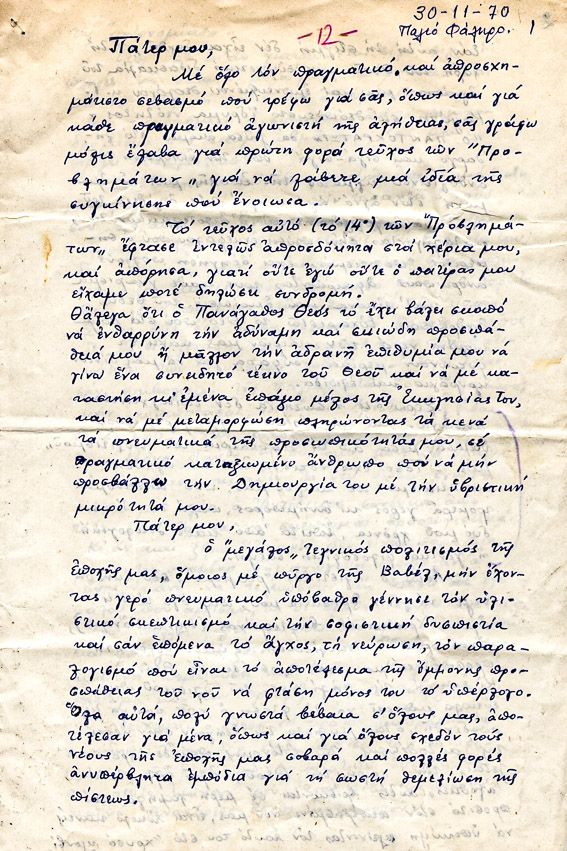 30-11-70
-12-
Παλιό Φάληρο. 1
Πάτερ μου,
Μέ ὅλο τόν πραγματικό καί ἀπροσχη-
μάτιστο σεβασμό πού τρέφω γιά σᾶς, ὅπως καί γιά
κάθε πραγματικό ἀγωνιστή τῆς ἀλήθειας, σᾶς γράφω
μόλις ἔλαβα γιά πρώτη φορά τεῦχος τῶν "Προ-
βλημάτων" γιά νά λάβετε μιά ἰδέα τῆς
συγκίνησης πού ἔνοιωσα.
Τό τεῦχος αὐτό (τό 14ο) τῶν "Προβλημά-
των" ἔφτασε ἐντελῶς ἀπροσδόκητα στά χέρια μου,
καί ἀπόρησα, γιατί οὔτε ἐγώ οὔτε ὁ πατέρας μου
εἴχαμε ποτέ δηλώσει συνδρομή.
Θἄλεγα ὅτι ὁ Πανάγαθος Θεός τό ἔχει βάλει σκοπό
νά ἐνθαρρύνη τήν ἀδύναμη καί σκιώδη προσπά-
θειά μου ἤ μᾶλλον τήν ἀδρανῆ ἐπιθυμία μου νά
γίνω ἕνα συνειδητό τέκνο τοῦ Θεοῦ καί νά μέ κα-
ταστήση κι' ἐμένα ἐπάξιο μέλος τῆς Ἐκκλησίας του,
καί νά μέ μεταμορφώση πληρώνοντας τά κενά
τά πνευματικά τῆς προσωπικότητάς μου, σέ
πραγματικό καταξιωμένο ἄνθρωπο πού νά μήν
προσβάλλω τήν Δημιουργία του μέ τήν ὑβριστική
μικρότητά μου.
Πάτερ μου,
ὁ "μεγάλος" τεχνικός πολιτισμός τῆς
ἐποχῆς μας, ὅμοιος μέ πύργο τῆς Βαβέλ, μήν ἔχον-
τας γερό πνευματικό ὑπόβαθρο γέννησε τόν ὑλι-
στικό σκεπτικισμό καί τήν σοφιστική δυσπιστία
καί σάν ἑπόμενα τό ἄγχος, τή νεύρωση, τόν παρα-
λογισμό πού εἶναι τό ἀποτέλεσμα τῆς ἔμμονης προ-
σπάθειας τοῦ νοῦ νά φτάση μόνος του τό ὑπέρλογο.
Ὅλα αὐτά, πολύ γνωστά βέβαια σ' ὅλους μας, ἀπο-
τέλεσαν γιά μένα, ὅπως καί γιά ὅλους σχεδόν τούς
νέους τῆς ἐποχῆς μας σοβαρά καί πολλές φορές
ἀνυπέρβλητα ἐμπόδια γιά τή σωστή θεμελίωση τῆς
πίστεως.